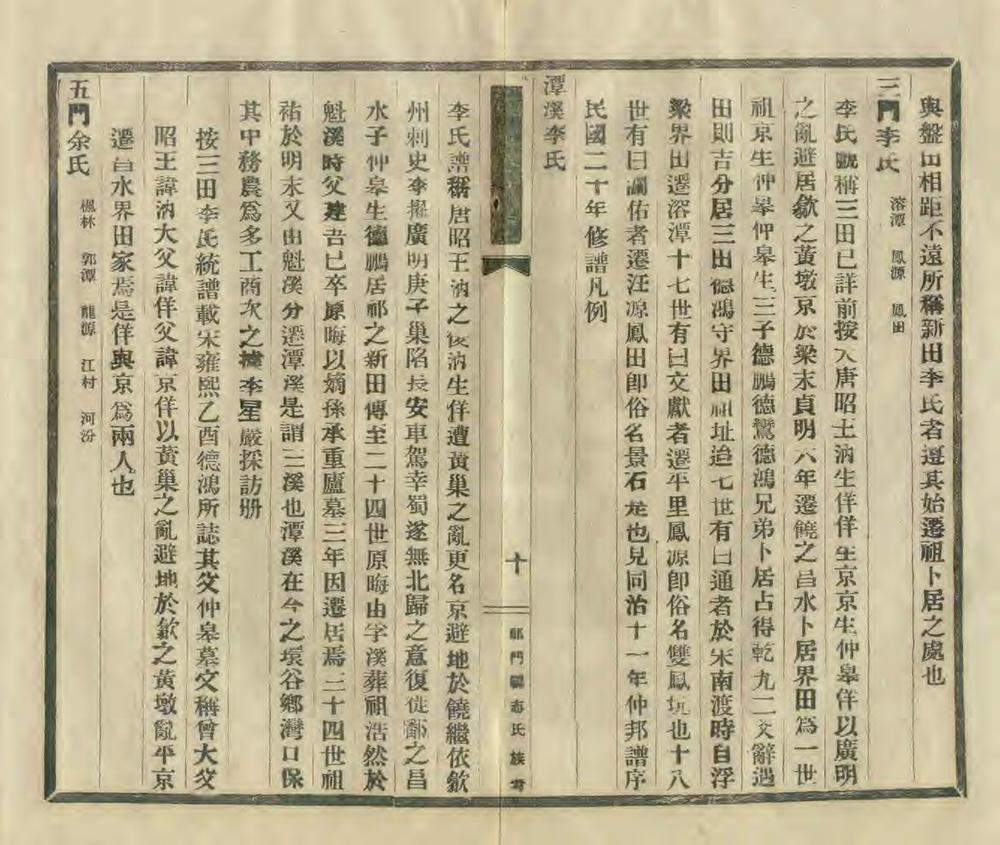 與盤田相距不遠所稱新田李氏者迺其始遷祖卜居之處也
三門李氏 溶潭 鳳源 鳳田
李氏號稱三田已詳前按大唐昭王汭生佯佯生京京生仲皋佯以廣明
之亂避居歙之黃墩京於梁末貞明六年遷饒之昌水卜居界田為一世
祖京生仲皋仲皋生三子德鵬德鸞德鴻兄弟卜居占得乾九二爻辭遇
田則吉分居三田德鴻守界田祖址迨七世有曰通者於宋南渡時自浮
梁界田遷溶潭十七世有曰文獻者遷平里鳳源卽俗名雙鳳坑也十八
世有曰瀰佑者遷汪源鳳田卽俗名景石坵也見同治十一年仲邦譜序
民國二十年修譜凡例
潭溪李氏
十
祁門縣志氏族考
李氏譜稱唐昭王汭之後汭生佯遭黃巢之亂更名京避地於饒繼依歙
州刺史李擢廣明庚子巢陷長安車駕幸蜀遂無北歸之意復徙鄱之昌
水子仲皋生德鵬居祁之新田傳至二十四世原晦由孚溪葬祖浩然於
魁溪時父建吾已卒原晦以嫡孫承重廬墓三年因遷居焉三十四世祖
祐於明末又由魁溪分遷潭溪是謂三溪也潭溪在今之環谷鄉灣口保
其中務農爲多工商次之據李星嚴採訪册
按三田李氏統譜載宋雍熙乙酉德鴻所誌其父仲皋墓文稱曾大父
昭王諱汭大父諱佯父諱京佯以黃巢之亂避地於歙之黃墩亂平京
遷昌水界田家焉是佯與京爲兩人也
五門余氏 楓林 郭潭 龍源 江村 河汾